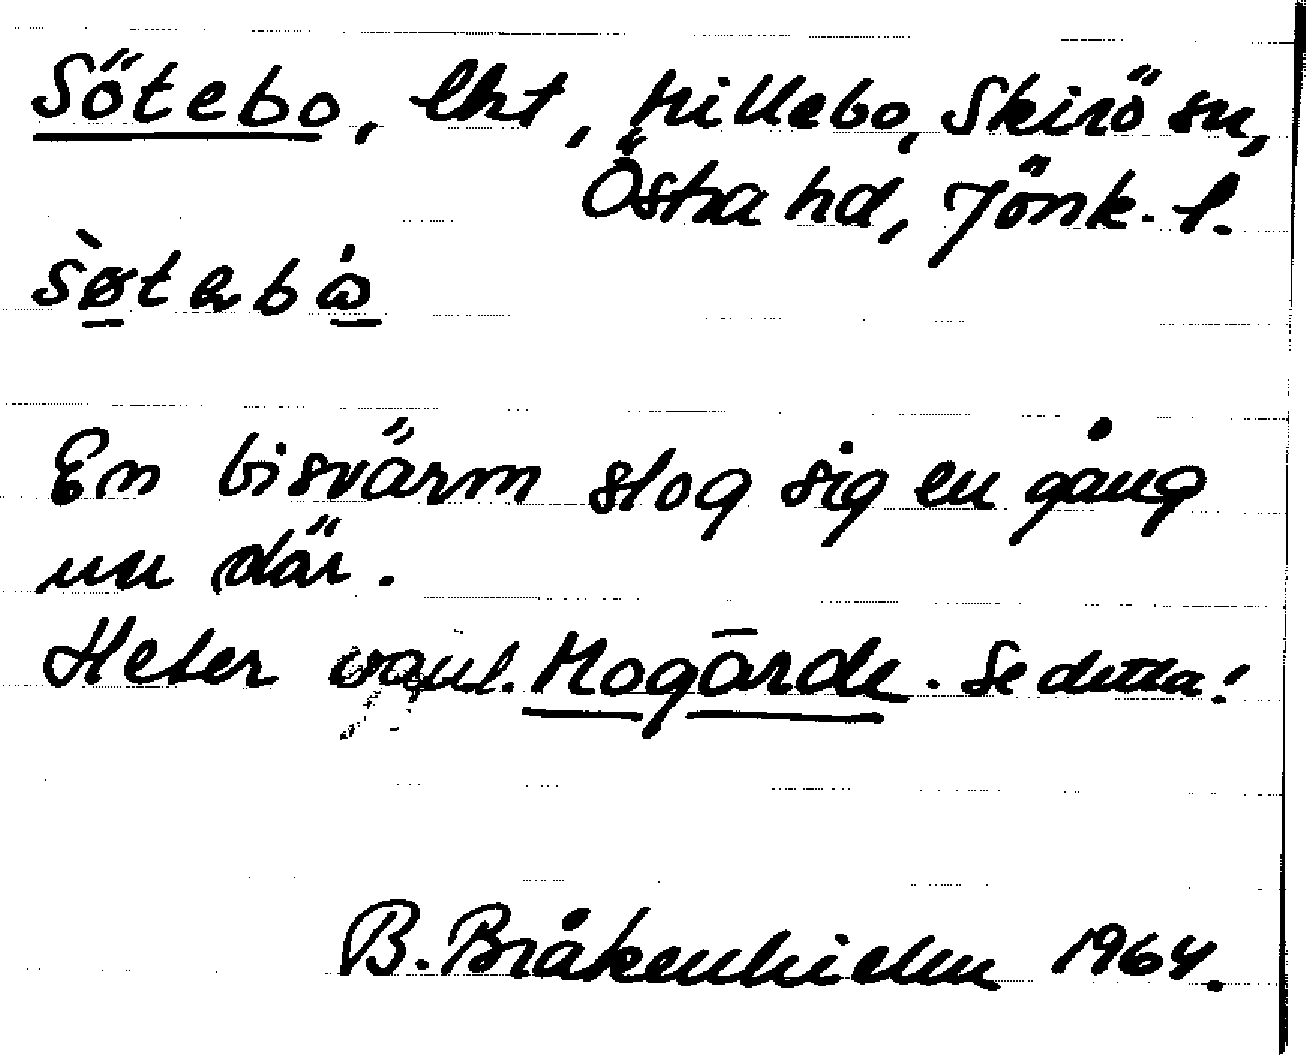 Sötebo, lht, Hillebo, Skirö sn,
Östra hd, Jönk. l.
sø̀tebȯ
En bisvärm slog sig en gång
ner där.
Heter vanl. Hogärde. Se detta!
B. Bråkenhielm 1964.